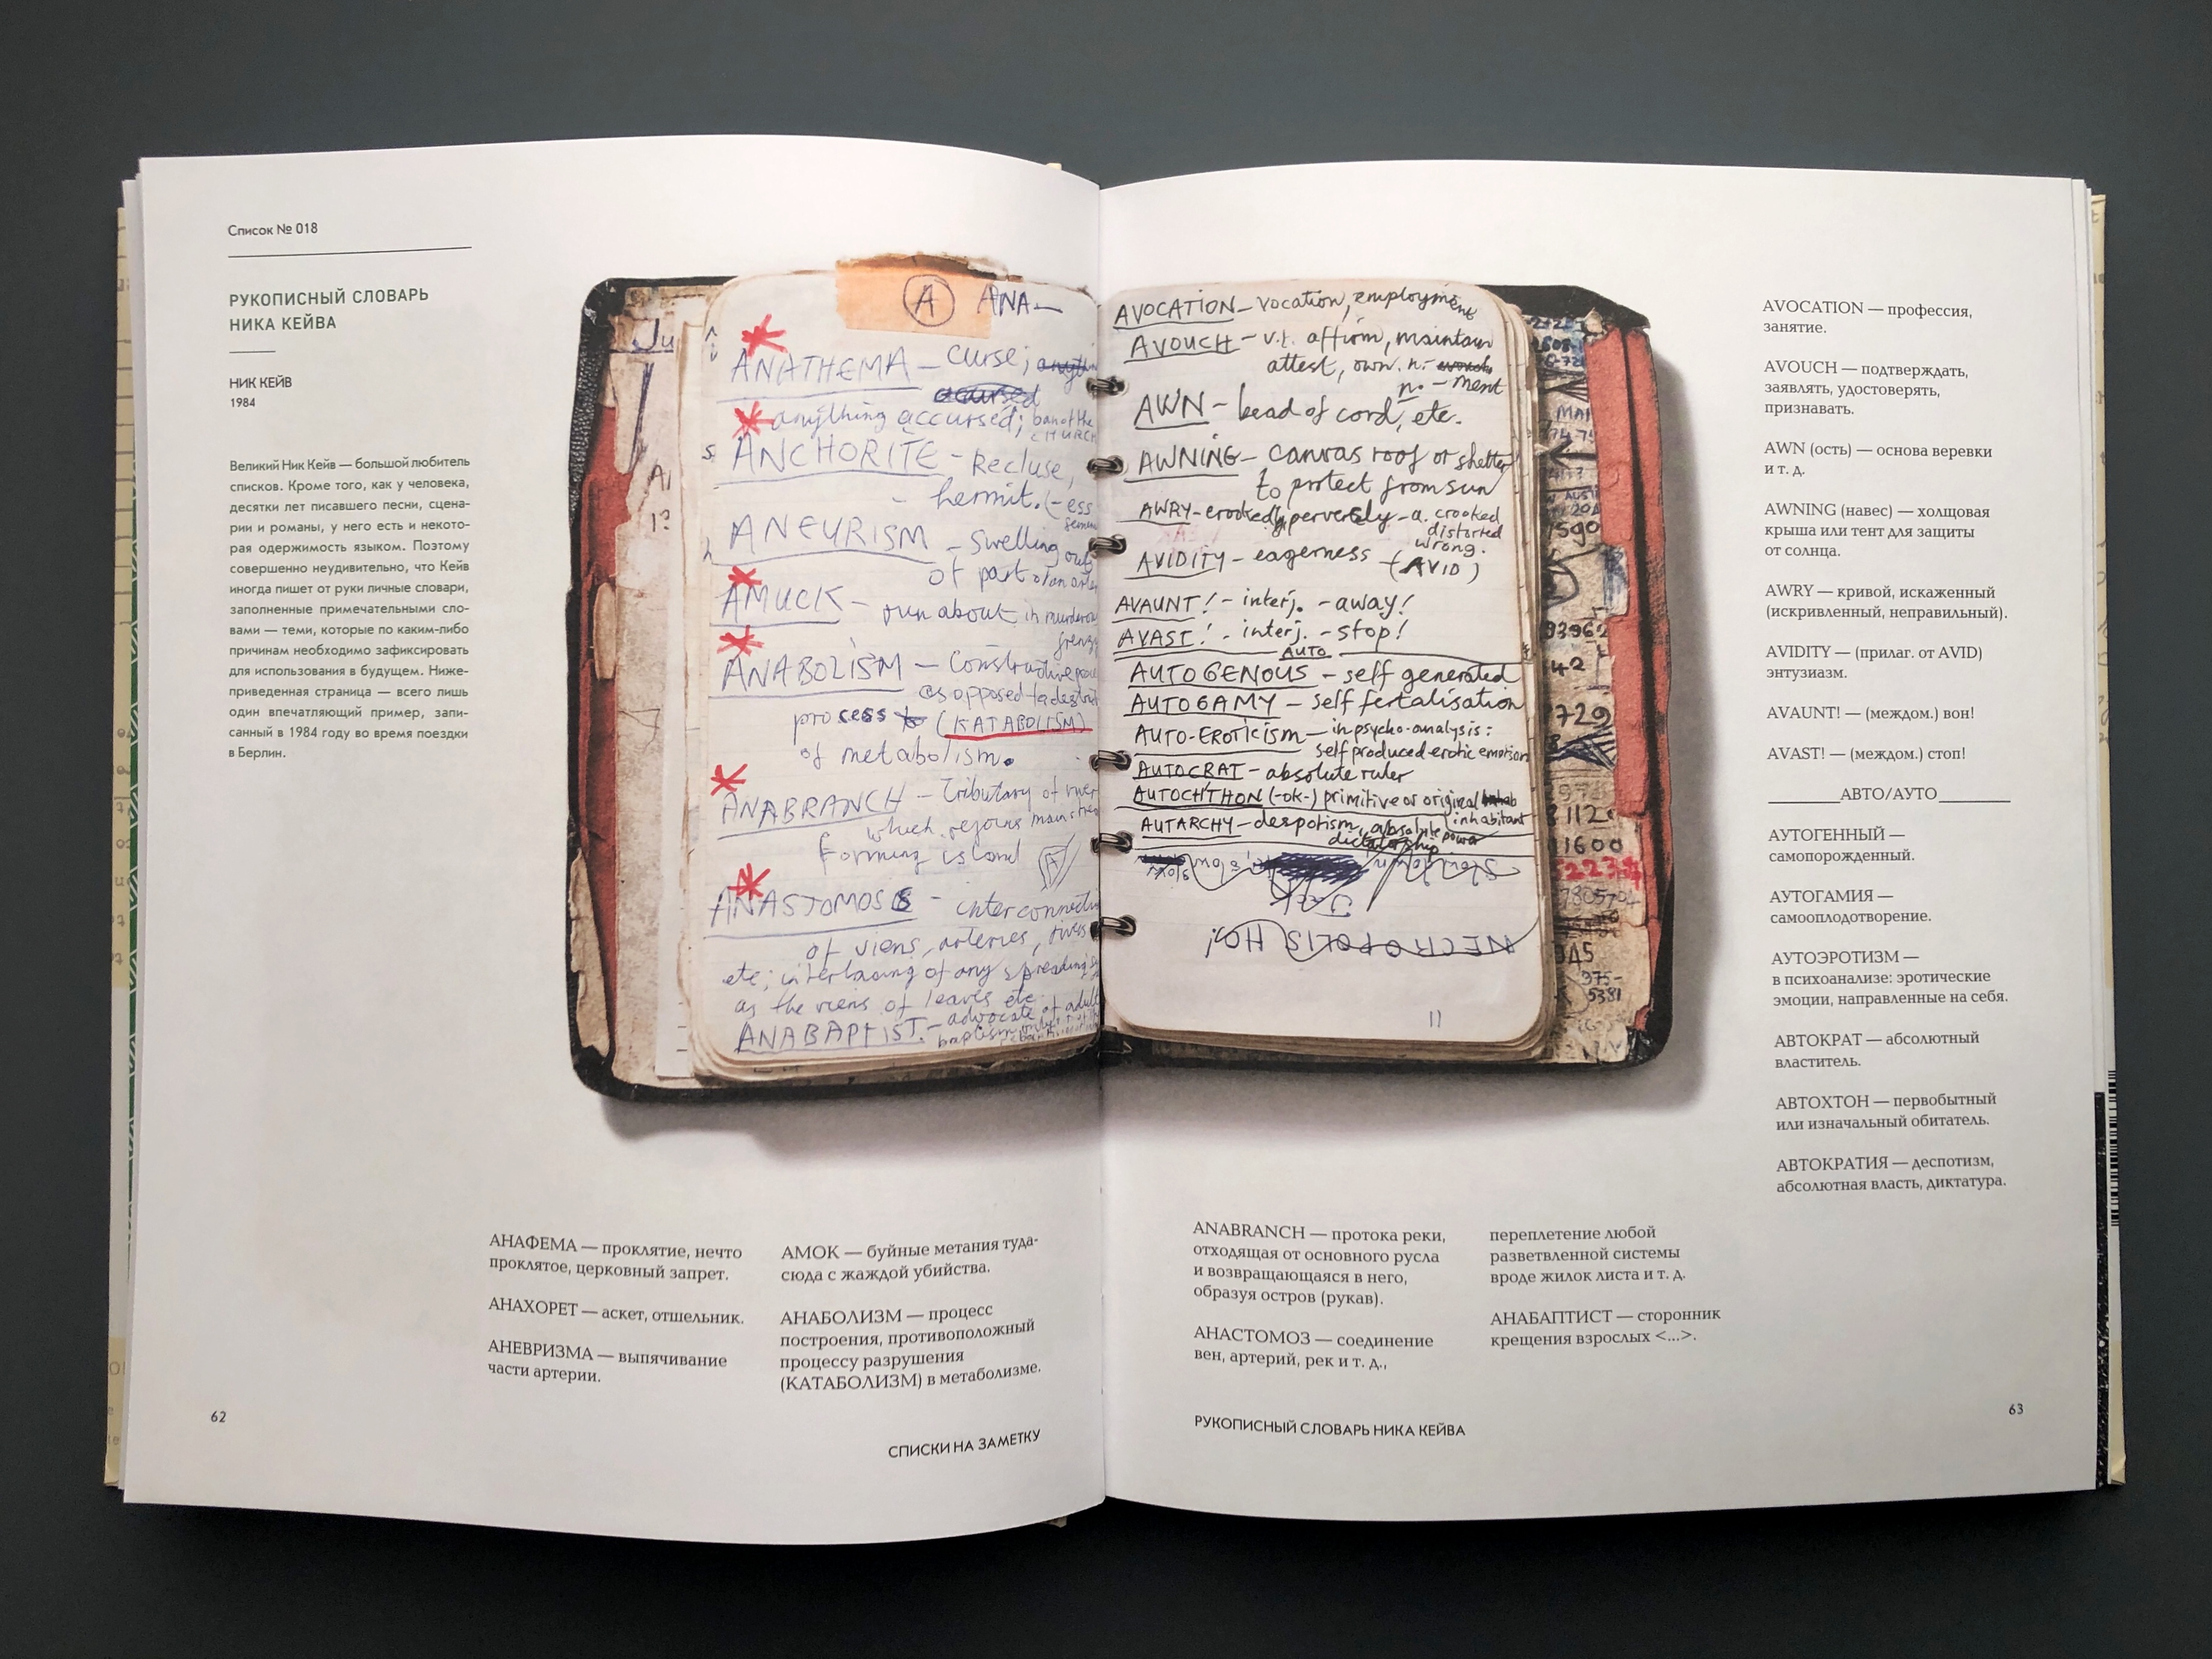 Список № 018
РУКОПИСНЫЙ СЛОВАРЬ
НИКА КЕЙВА
НИК КЕЙВ
1984
Великий Ник Кейв — большой любитель
списков. Кроме того, как у человека,
десятки лет писавшего песни, сцена-
рии и романы, у него есть и некото-
рая одержимость языком. Поэтому
совершенно неудивительно, что Кейв
иногда пишет от руки личные словари,
заполненные примечательными сло-
вами — теми, которые по каким-либо
причинам необходимо зафиксировать
для использования в будущем. Ниже-
приведенная страница — всего лишь
один впечатляющий пример, запи-
санный в 1984 году во время поездки
в Берлин.
A ANA—
ANATHEMA — curse;
anything accursed; ban of the
CHURCH
ANCHORITE - Recluse,
- hermit. (-ess
ANEURISM - swelling out
of part of an
AMUCK - run about in murderous
ANABOLISM — Constructive
as opposed to
process (KATABOLISM)
of metabolism.
ANABRANCH — Tributary of river
which rejoins main
forming island
ANASTOMOSIS -
of viens, arteries,
etc; interlacing of any spreading
as the viens of leaves etc.
ANABAPTIST. - advocate of adult
baptism only
AVOCATION — vocation, employment
AVOUCH - v.t. affirm, maintain
attest, own. n.
n. - ment
AWN - bead of cord, etc.
AWNING — canvas roof or shelter
to protect from sun
AWRY - crookedly, perversely - a. crooked
distorted
wrong.
AVIDITY - eagerness - (AVID)
AVAUNT! - interj. - away!
AVAST! - interj. - stop!
AUTO
AUTOGENOUS - self generated
AUTOGAMY - self fertalisation
AUTO-EROTICISM — in psycho-analysis:
self produced erotic emotion
AUTOCRAT - absolute ruler
AUTOCHTHON (-ok-) primitive or original
inhabitant
AUTARCHY - despotism, absolute power
dictatorship
NECROPOLIS HO!
11
AVOCATION — профессия,
занятие.
AVOUCH — подтверждать,
заявлять, удостоверять,
признавать.
AWN (ость) — основа веревки
и т. д.
AWNING (навес) — холщовая
крыша или тент для защиты
от солнца.
AWRY — кривой, искаженный
(искривленный, неправильный).
AVIDITY — (прилаг. от AVID)
энтузиазм.
AVAUNT! — (междом.) вон!
AVAST! — (междом.) стоп!
АВТО/АУТО
АУТОГЕННЫЙ —
самопорожденный.
АУТОГАМИЯ —
самооплодотворение.
АУТОЭРОТИЗМ —
в психоанализе: эротические
эмоции, направленные на себя.
АВТОКРАТ — абсолютный
властитель.
АВТОХТОН — первобытный
или изначальный обитатель.
АВТОКРАТИЯ — деспотизм,
абсолютная власть, диктатура.
АНАФЕМА — проклятие, нечто
проклятое, церковный запрет.
АНАХОРЕТ — аскет, отшельник.
АНЕВРИЗМА — выпячивание
части артерии.
АМОК — буйные метания туда-
сюда с жаждой убийства.
АНАБОЛИЗМ — процесс
построения, противоположный
процессу разрушения
(КАТАБОЛИЗМ) в метаболизме.
ANABRANCH — протока реки,
отходящая от основного русла
и возвращающаяся в него,
образуя остров (рукав).
АНАСТОМОЗ — соединение
вен, артерий, рек и т. д.,
переплетение любой
разветвленной системы
вроде жилок листа и т. д.
АНАБАПТИСТ — сторонник
крещения взрослых <...>.
62
СПИСКИ НА ЗАМЕТКУ
РУКОПИСНЫЙ СЛОВАРЬ НИКА КЕЙВА
63